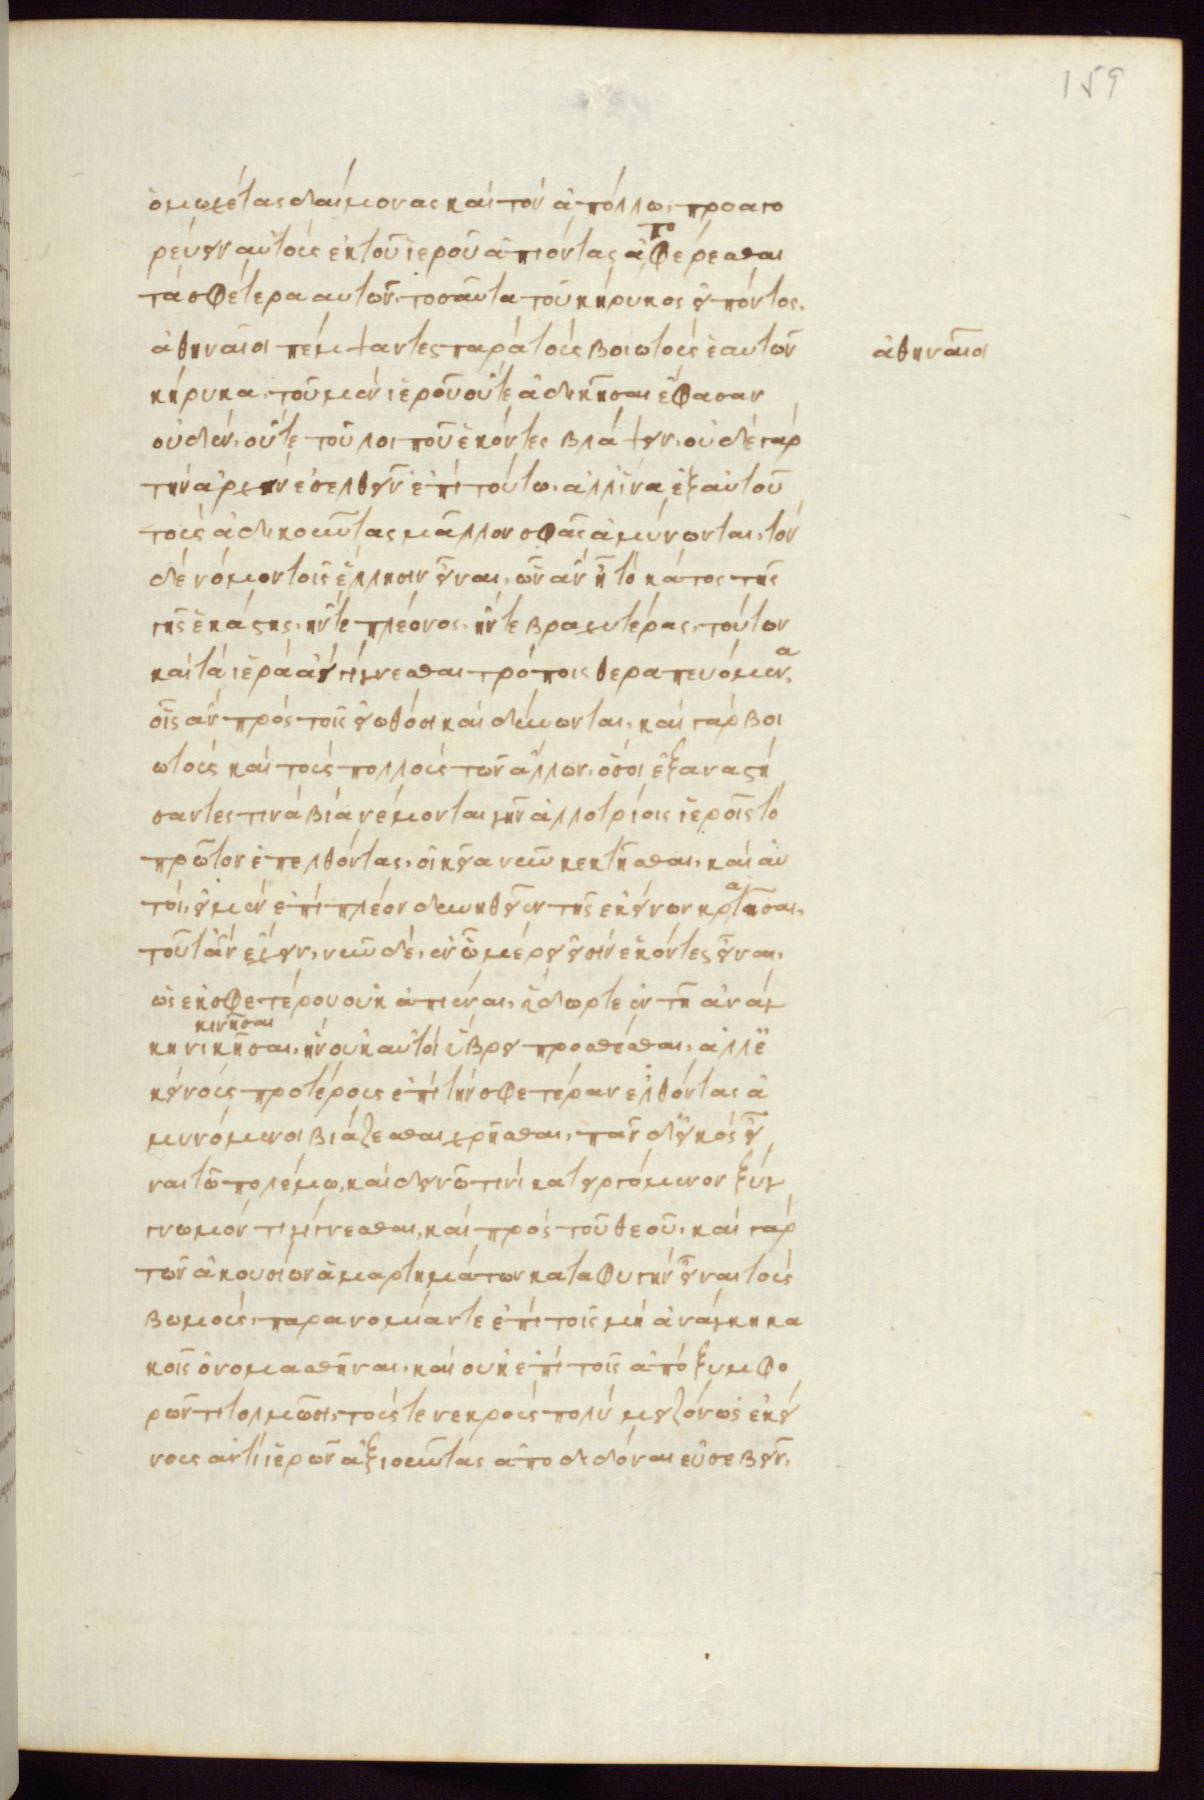 159
ὁμωχέτας δαίμονας καὶ τὸν ἀπόλλω· προαγο
ρεύειν αὐτοὺς ἐκ τοῦ ἱεροῦ ἀπιόντας ἀποφέρεσθαι
τὰ σφέτερα αυτῶν. τοσαῦτα τοῦ κήρυκος εἰπόντος.
ἀθηναῖοι πέμψαντες παρὰ τοὺς βοιωτοὺς ἑαυτῶν
ἀθηναῖοι
κήρυκα, τοῦ μὲν ἱεροῦ οὔτε ἀδικῆσαι ἔφασαν
οὐδὲν, οὔτε τοῦ λοιποῦ ἑκόντες βλάψειν. οὐδὲ γὰρ
τὴν ἀρχὴν ἐσελθεῖν ἐπὶ τούτω. ἀλλ' ἵνα ἐξ αὐτοῦ
τοὺς ἀδικοῦντας μᾶλλον σφᾶς ἀμύνωνται, τὸν
δὲ νόμον τοῖς ἕλλησιν εἶναι, ὧν ἂν ἦ τὸ κάτος τῆς
γῆς ἑκάστης, ἤν τε πλέονος, ἤν τε βραχυτέρας, τούτων
καὶ τὰ ἱερὰ ἀεὶ γίγνεσθαι τρόποις θεραπευόμενα,
οἷς ἂν πρὸς τοῖς εἰωθόσι καὶ δύνωνται, καὶ γὰρ βοι
ωτοὺς καὶ τοὺς πολλοὺς τῶν ἄλλων, ὅσοι ἐξαναστή
σαντές τινα βία νέμονται γῆν ἀλλοτρίοις ἱεροῖς τὸ
πρῶτον ἐπελθόντας, οἰκεῖα νῦν κεκτῆσθαι, καὶ αὐ
τοὶ, εἰ μὲν ἐπὶ πλέον δυνηθῆναι τῆς ἐκείνων κρατῆσαι,
τοῦτ' ἂν ἔχειν, νῦν δὲ, ἐν ὧ μέρει εἰσὶν ἑκόντες εἶναι,
ὡς ἐκ σφετέρου οὐκ ἀπιέναι, ὕδωρ τε ἐν τῆ ἀνάγ
κη νικῆσαι, ἣν οὐκ αὐτοὶ ὕβρει προσθέσθαι, ἀλλ' ἐ
κινῆσαι
κείνους προτέρους ἐπὶ τὴν σφετέραν ἐλθόντας ἀ
μυνόμενοι βιάζεσθαι χρῆσθαι, πᾶν δ' εἰκὸς εἶ
ναι τῶ πολέμω, καὶ δεινῶ τινὶ κατειργόμενον ξύγ
γνωμόν τι γίγνεσθαι, καὶ πρὸς τοῦ θεοῦ. καὶ γὰρ
τῶν ἀκουσίων ἁμαρτημάτων καταφυγὴν εἶναι τοὺς
βωμοὺς, παρανομίαν τε ἐπὶ τοῖς μὴ ἀνάγκη κα
κοῖς ὀνομασθῆναι, καὶ οὐκ ἐπὶ τοῖς ἀπὸ ξυμφο
ρῶν τι τολμῶσι, τούς τε νεκροὺς πολὺ μειζόνως ἐκεί
νους ἀντὶ ἱερῶν ἀξιοῦντας ἀποδιδόναι εὐσεβεῖν.